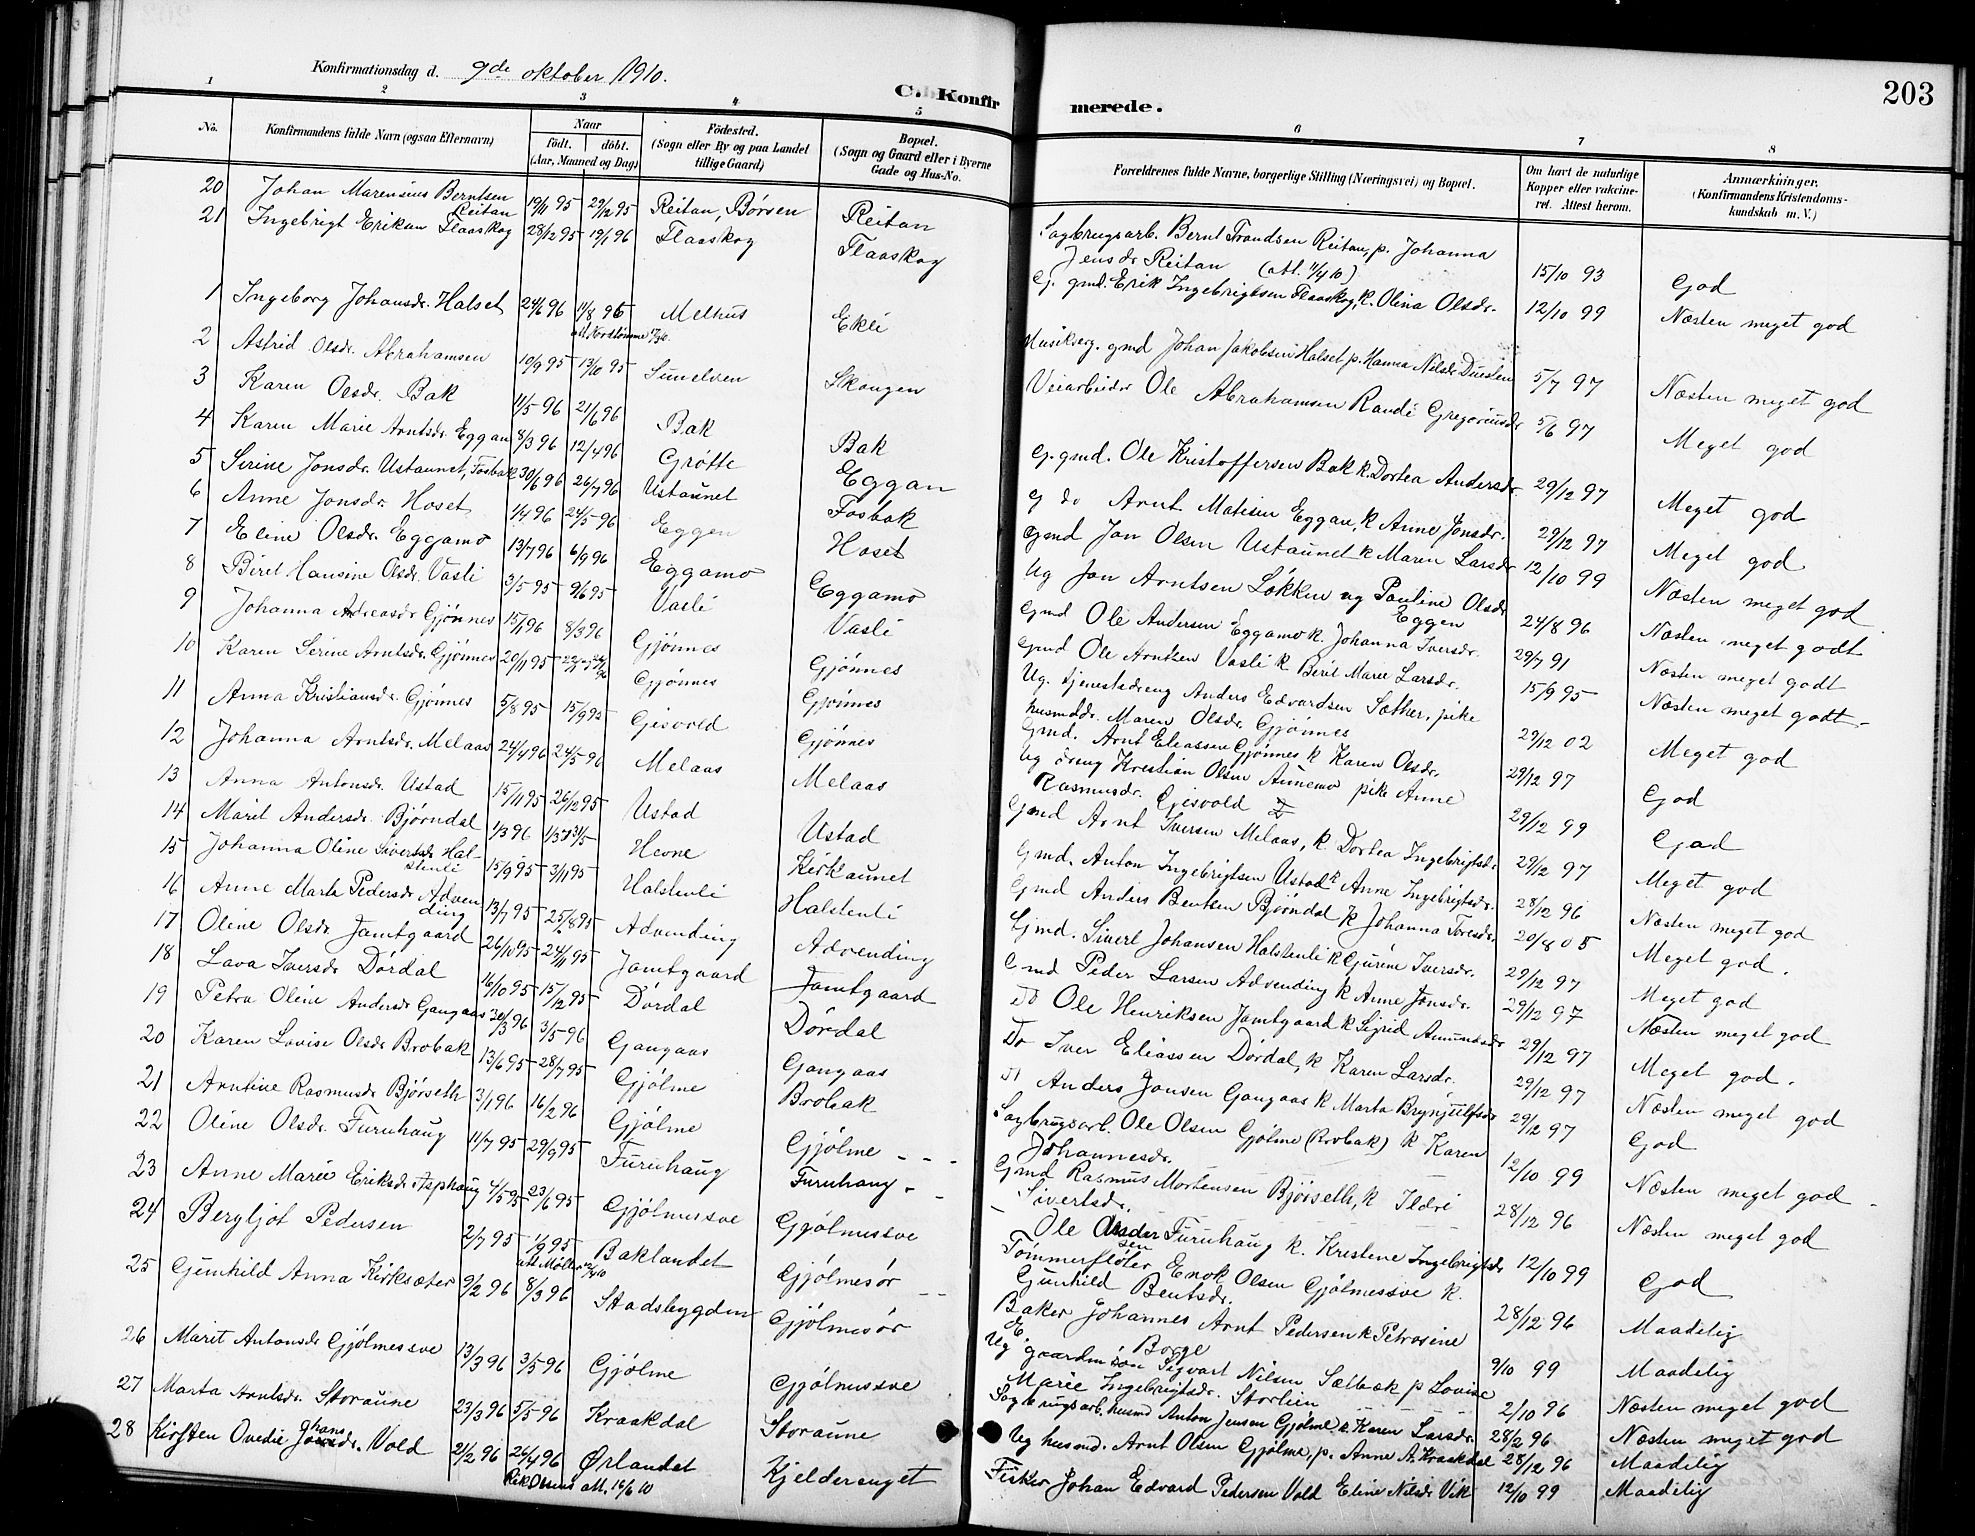 Konfirmationsdag d. 9de oktober 1910.
C. Konfirmerede.
203
1 2 3 4 5 6 7 8
No.
Konfirmandens fulde Navn (ogsaa Efternavn)
Naar
født. døbt.
(Aar, Maaned og Dag)
Fødested.
(Sogn eller By og paa Landet
tillige Gaard)
Bopæl.
(Sogn og Gaard eller i Byerne
Gade og Hus-No.
Forældrenes fulde Navne, borgerlige Stilling (Næringsvei) og Bopæl.
Om havt de naturlige
Kopper eller vakcine-
ret. Attest herom.
Anmærkninger.
(Konfirmandens Kristendoms-
kundskab m. V.)
20 Johan Marensius Berntsen Reitan 19/11 95 29/12 95 Reitan, Børsen Reitan Sagbrugsarb. Bernt Trondsen Reitan, p. Johanna Jensdr Reitan (att. 11/4 10) 15/10 93 God
21 Ingebrigt Eriksen Flaaskog 28/12 95 19/1 96 Flaaskog Flaaskog G. gmd. Erik Ingebrigtsen Flaaskog, k. Olina Olsdr. 12/10 99 Næsten meget god
1 Ingeborg Johansdr. Halset 24/6 96 11/8 96 Melhus Ekli Musikerg. gmd Johan Jakobsen Halset p. Hanna Nilsdr Duesten 5/7 97 Næsten meget god
2 Astrid Olsdr. Abrahamsen 10/9 95 13/10 95 Sunelven Skaugen Veiarbeider Ole Abrahamsen Randi Gregoriusdr 5/6 97 Meget god
3 Karen Olsdr. Bak 11/5 96 21/6 96 Bak Bak G. gmd. Ole Kristoffersen Bak k. Dortea Andersdr 29/12 97 Meget god
4 Karen Marie Arntsdr. Eggan 8/3 96 12/4 96 Grøtte Eggan G do Arnt Matisen Eggan, k Anne Jonsdr. 29/12 97 Meget god
5 Serine Jonsdr. Ustaunet, Fosbak 30/6 96 26/7 96 Ustaunet Fosbak Gmd Jon Olsen Ustaunet k Maren Larsdr 12/10 99 Næsten meget god
6 Anne Jonsdr. Hoset 1/4 96 24/5 96 Eggen Hoset Ug Jon Arntsen Løkken ug Pauline Olsdr Eggen 24/8 96 Næsten meget godt
7 Eline Olsdr. Eggamo 13/7 96 6/9 96 Eggamo Eggamo Gmd Ole Andersen Eggamo k. Johanna Iversdr. 29/7 91 Næsten meget godt
8 Beret Hansine Olsdr. Vasli 3/5 95 9/6 95 Vasli Vasli Gmd Ole Arntsen Vasli k Berit Marie Larsdr. 15/9 95 Næsten meget godt
9 Johanna Andreasdr. Gjønnes 15/1 96 8/3 96 Gjønnes Gjønnes Ug. tjenestedreng Anders Edvardsen Sæther, pike husmddr. Maren Olsdr. Gjønnes 29/12 02 Meget god
10 Karen Serine Arntsdr. Gjønnes 20/11 95 Gjønnes Gjønnes Gmd. Arnt Eliassen Gjønnes k Karen Olsdr. 29/12 97 God
11 Anna Kristiansdr. Gjønnes 5/8 95 15/9 95 Gisvold Gjønnes Ug dreng Kristian Olsen Aunemo pike Anne Rasmusdr. Gisvold 29/12 99 God
12 Johanna Arntsdr. Melaas 24/4 96 24/5 96 Melaas Melaas Gmd Arnt Iversen Melaas, k. Dortea Ingebrigtsdr. 29/12 97 Meget god
13 Anna Antonsdr. Ustad 15/11 95 26/12 95 Ustad Ustad Gmd. Anton Ingebrigtsen Ustad k Anne Ingebrigtsdr. 28/12 96 Næsten meget god
14 Marit Andersdr. Bjørndal 1/3 96 Hevne Kirkaunet Gmd Anders Bentsen Bjørndal k Johanna Toresdr. 20/8 05 Meget god.
15 Johanna Oline Sivertsdr. Halstenli 15/9 95 3/11 95 Halstenli Halstenli Gmd. Sivert Johansen Halstenli k Gjurine Iversdr. 29/12 97 Meget god
16 Anne Marta Pedersdr Advending 13/7 95 25/8 95 Advending Advending Gmd Peder Larsen Advending k Anne Jonsdr. 29/12 97 Næsten meget god
17 Oline Olsdr Jamtgaard 26/10 95 24/11 95 Jamtgaard Jamtgaard Do Ole Henriksen Jamtgaard k Sigrid Amundsdr 29/12 97 Meget god.
18 Lava Iversdr Dørdal 16/10 95 15/12 95 Dørdal Dørdal Do Iver Eliassen Dørdal, k Karen Larsdr. 29/12 97 Næsten meget god
19 Petra Oline Andersdr Gangaas 30/3 96 3/5 96 Gangaas Gangaas Do Anders Jonsen Gangaas k Marta Brynjulfsdr 29/12 97 God
20 Karen Lovise Olsdr Brobak 13/6 95 28/7 95 Gjølme Brobak Sagbrugsarb. Ole Olsen Gjølme (Brobak) k Karen Johannesdr. 12/10 99 Næsten meget god
21 Arntine Rasmusdr Bjørseth 3/1 96 16/2 96 Gjølme Gjølme Gmd Rasmus Mortensen Bjørseth, k Ildri Sivertsdr. 28/12 96 Næsten meget god
22 Oline Olsdr. Furuhaug 11/7 95 29/9 95 Furuhaug Furuhaug Ole Furuhaug k. Kristene Ingebrigtsdr 12/10 99 God
23 Anne Marie Eriksdr Asphaug 4/5 95 23/6 95 Gjølmessve Gjølmessve Tømmerfløter Enok Olsen Gjølmessve k. Gunhild Bentsdr. 28/12 96 Maadelig
24 Bergljot Pedersen 2/7 95 1/9 95 Baklandet Gjølmesør Baker Johannes Arnt Pedersen k Petrosine Borge 9/10 99 Maadelig
25 Gunhild Anna Kirksæter 9/2 96 8/3 96 Stadsbygden Gjølmesør Ug. gaardm søn Sigvart Nilsen Sætbak p Lovise Marie Ingebrigtsdr. Storlien 2/10 96 Næsten meget god
26 Marit Antonsdr Gjølmessve 13/3 96 3/5 96 Gjølme Gjølmessve Sagbrugsarb. husmd Anton Jensen Gjølme k Karen Larsdr. 28/12 96 Næsten meget god
27 Marta Arntsdr. Storaune 23/3 96 5/5 96 Kraakdal Storaune Ug husmd. Arnt Olsen Gjølme, p. Anne A. Kraakdal 28/12 96 Maadelig
28 Kirsten Ovedie Johansdr. Vold 21/2 96 26/4 96 Ørlandet Kjelderenget Fisker Johan Edvard Pedersen Vold Eline Nilsdr Vik 12/10 99 Maadelig
att. 16/6 10